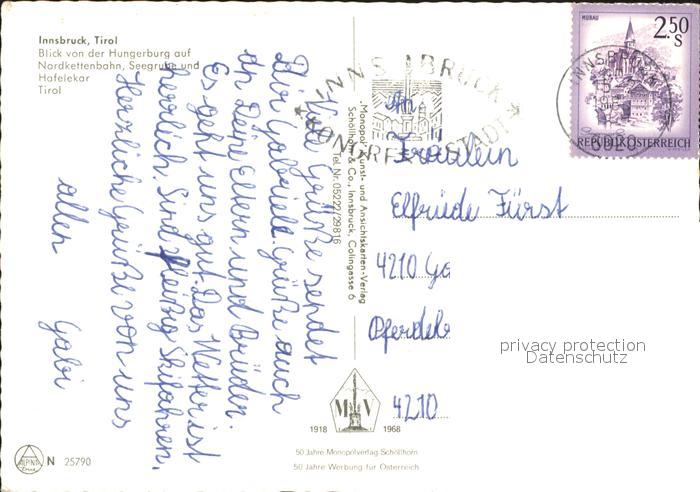 Innsbruck, Tirol
Blick von der Hungerburg auf
Nordkettenbahn, Seegrube und
Hafelekar
Tirol
Viele Grüße sendet
Dir Gabriele. Grüße auch
an Deine Eltern und Brüder.
Es geht uns gut. Das Wetter ist
herrlich. Sind fleißig Skifahren.
Herzliche Grüße von uns
allen
Gabi
"Monopol"-Kunst- und Ansichtskarten-Verlag
Schöllhorn & Co., Innsbruck, Colingasse 6
Tel. Nr. 05222/29816
INNSBRUCK
KONGRESSSTADT
MURAU
2.50
S
INNSBRUCK
REPUBLIK ÖSTERREICH
An
Fräulein
Elfriede Fürst
4210 Ga
Pferdeb
4210
privacy protection
Datenschutz
M V
1918 1968
50 Jahre Monopolverlag Schöllhorn
50 Jahre Werbung für Österreich
ALPINA
N 25790